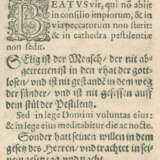 BEATUS vir, qui nõ abijt
in consilio impiorum, & in
via peccatorum non stetit:
& in cathedra pestilentiæ
non sedit.
Selig ist der Mensch, der nit ab
getretten ist in den rhat der gott-
losen, vnd nit gestanden in dem weg
der sünder, vnd nit gesessen auff
dem stůl der Pestilentz.
Sed in lege Domini voluntas eius:
& in lege eius meditabitur die ac nocte.
Sonder hatt seinen willen in dem
gesetz des Herren, vnd trachtet in sei-